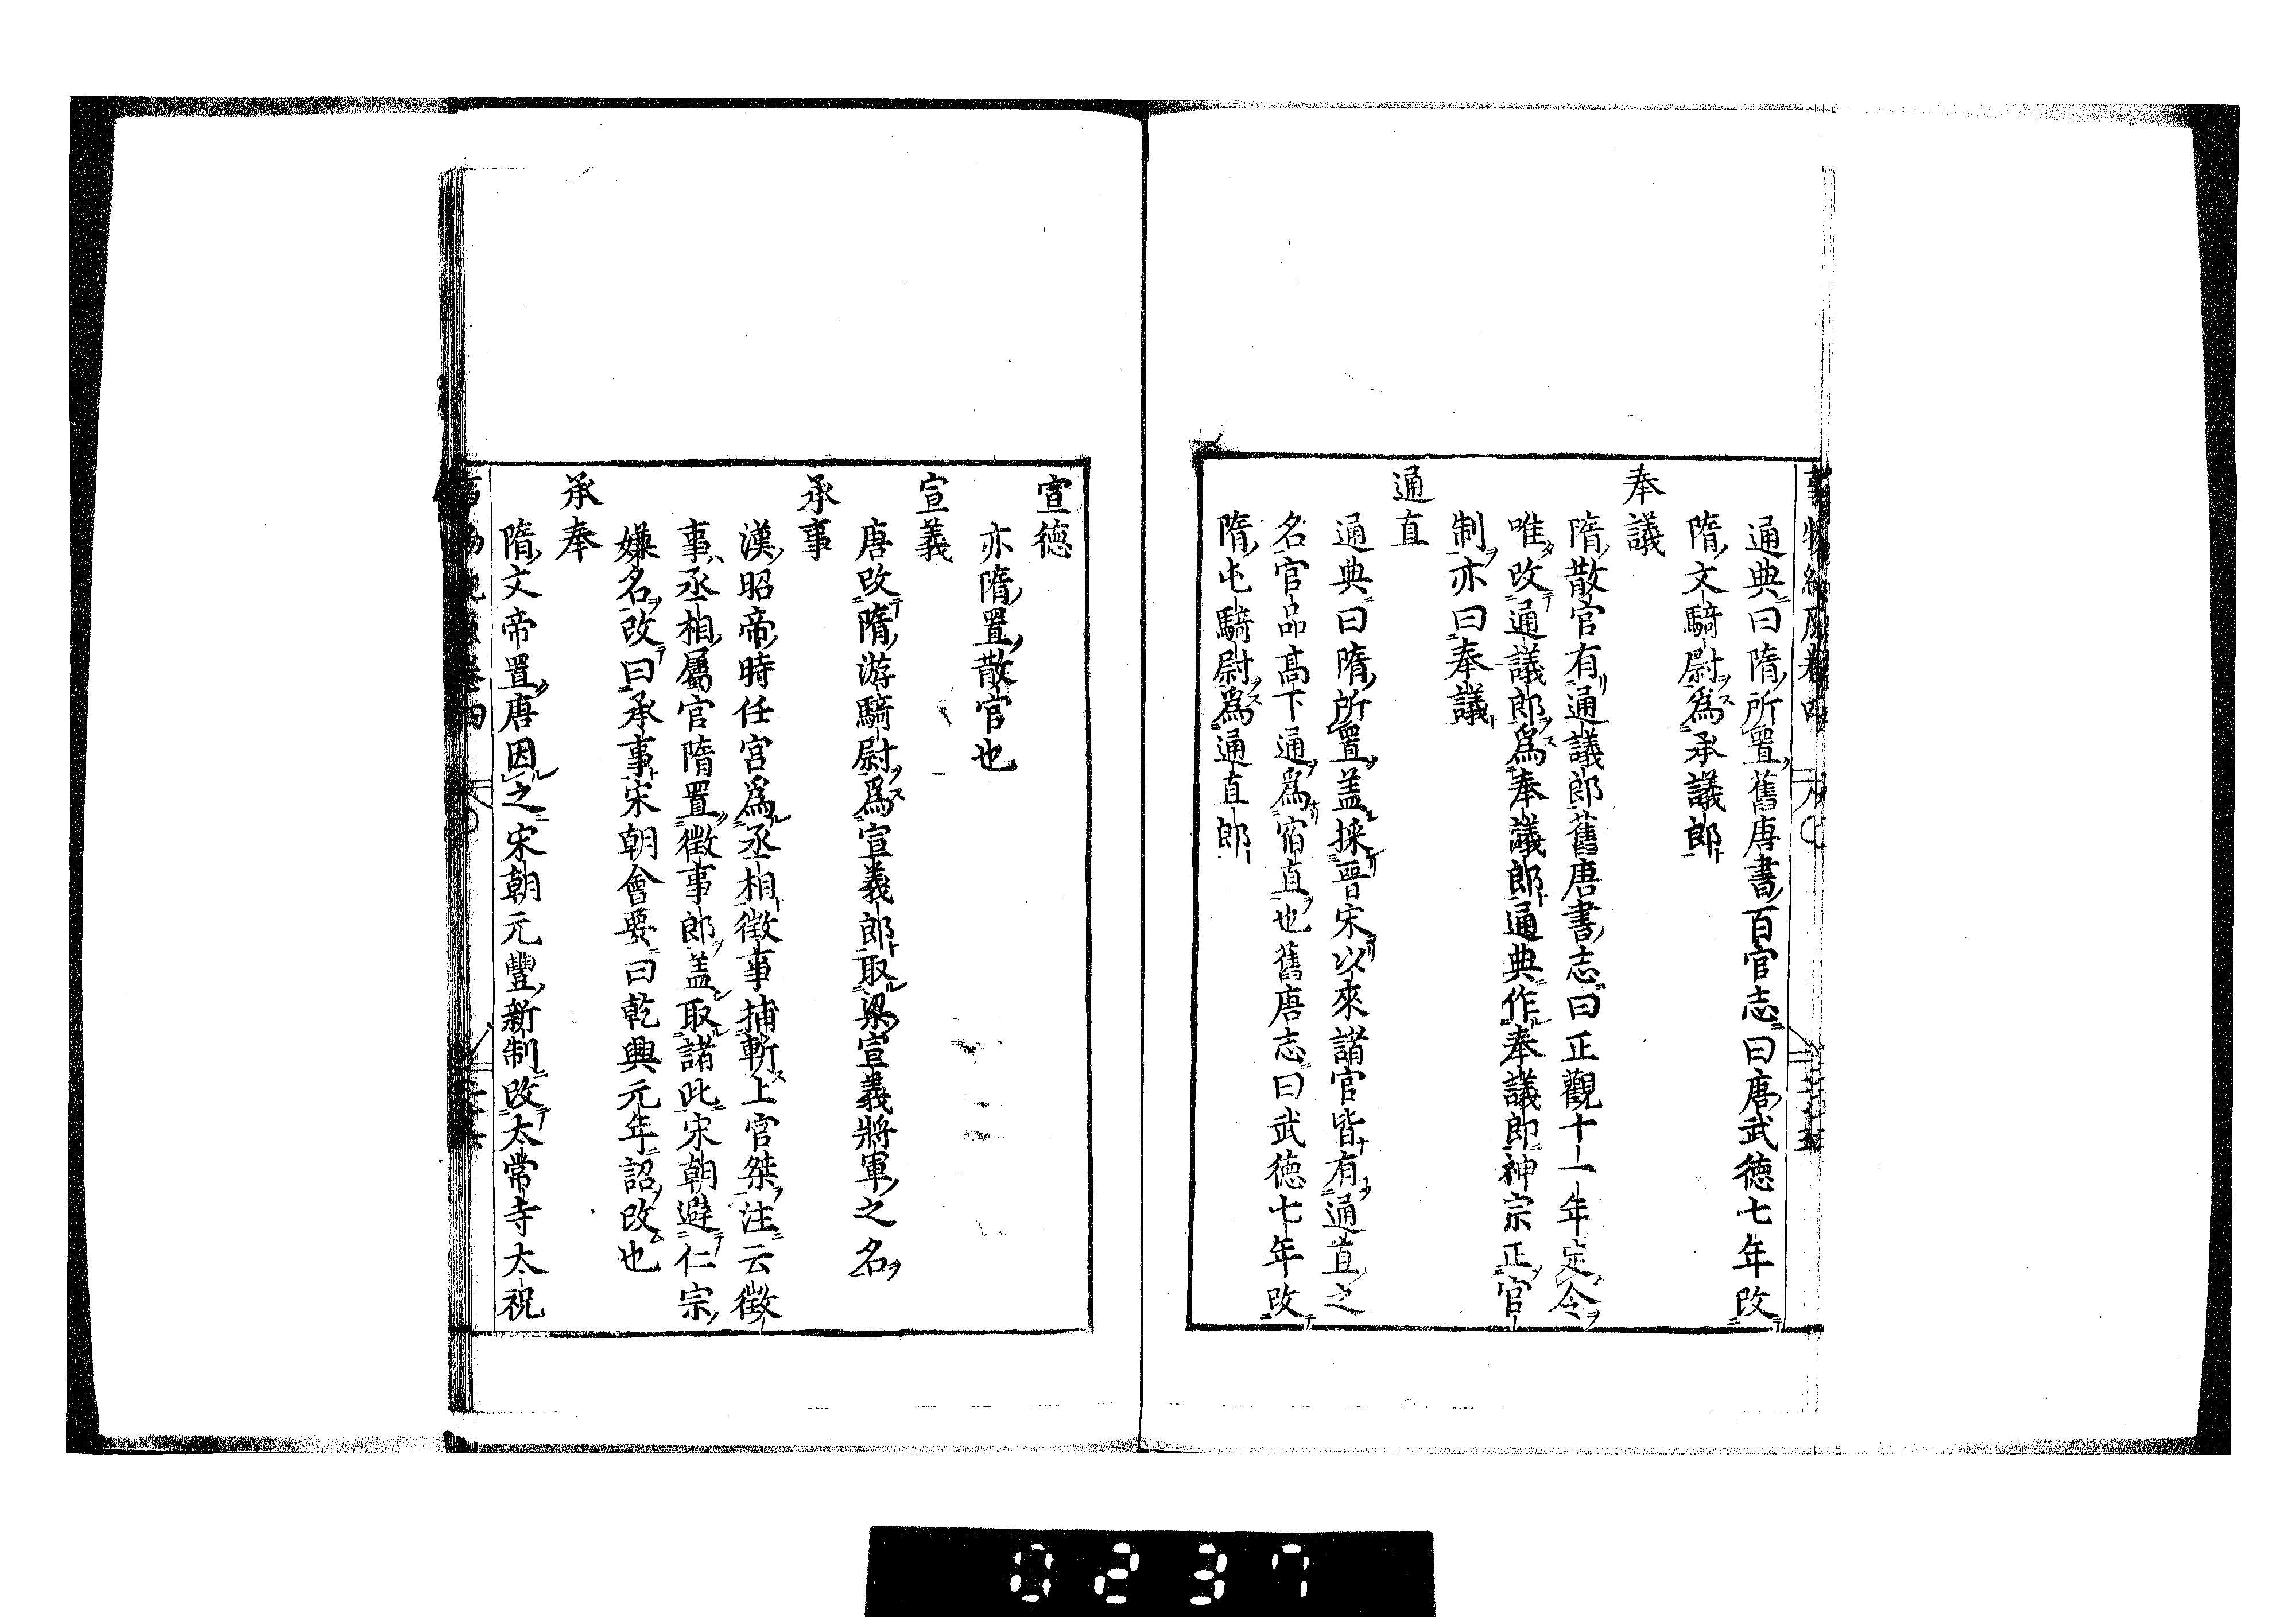 通典曰隋所置舊唐書百官志曰唐武德七年改
隋文騎尉爲承議郎
奉議
隋散官有通議郎舊唐書志曰正觀十一年定令
唯改通議郎爲奉議郎通典作奉議郎神宗正官
制亦曰奉議
通直
通典曰隋所置盖採晋宋以來諸官皆有通直之
名官品高下通爲宿直也舊唐志曰武德七年改
隋屯騎尉爲通直郎
宣德
亦隋置散官也
宣義
唐改隋游騎尉爲宣義郎取梁宣義將軍之名
承事
漢昭帝時任宫爲丞相徵事捕斬上官桀注云徵
事丞相屬官隋置徵事郎盖取諸此宋朝避仁宗
嫌名改曰承事宋朝會要曰乾興元年詔改也
承奉
隋文帝置唐因之宋朝元豐新制改太常寺太祝
0237